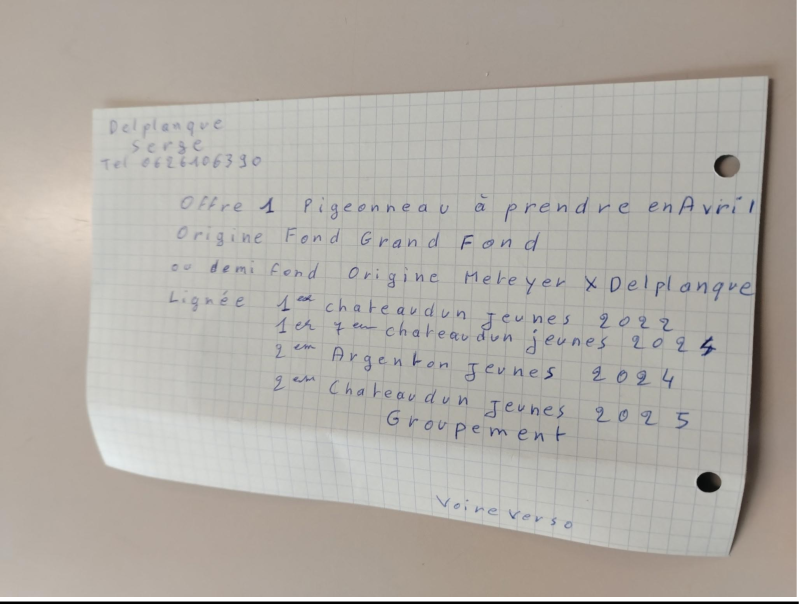 Delplanque
Serge
Tel 0626106390
Offre 1 Pigeonneau à prendre en Avril
Origine Fond Grand Fond
ou demi fond Origine Meteyer X Delplanque
Lignée 1er chateaudun jeunes 2022
1er 7em chateaudun jeunes 2024
2em Argenton jeunes 2024
2em Chateaudun jeunes 2025
Groupement
Voire verso